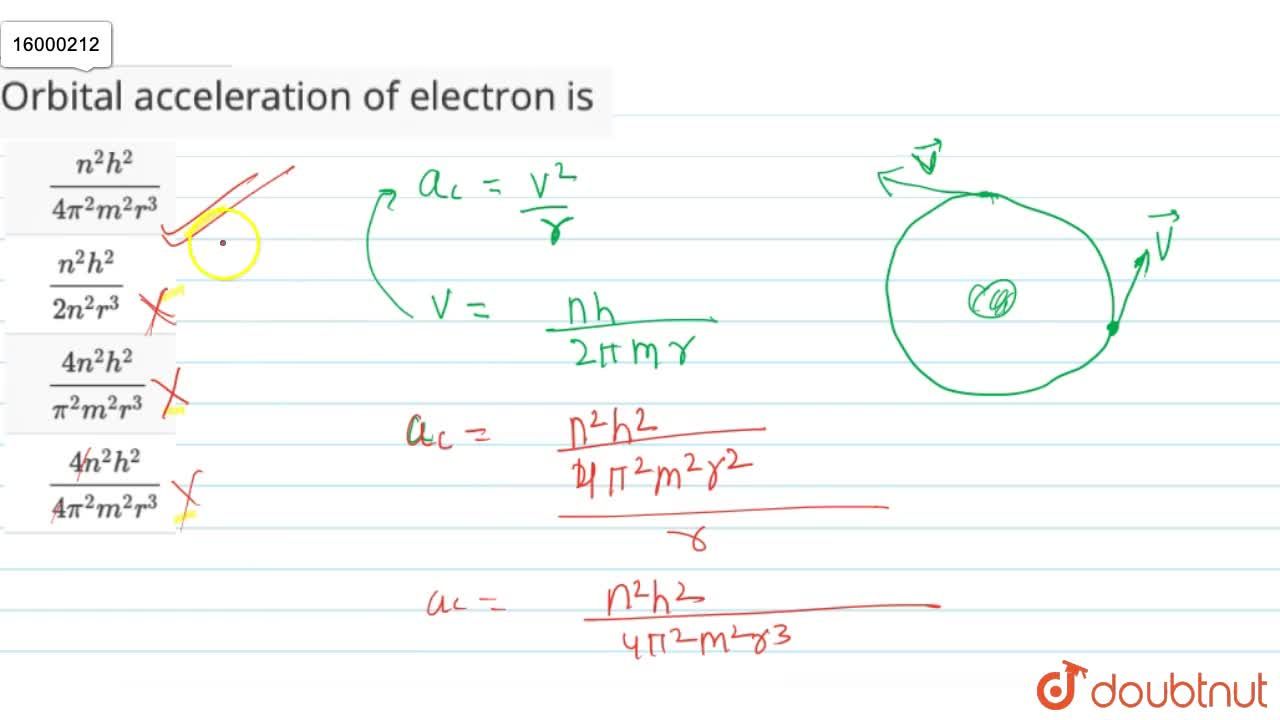 16000212
Orbital acceleration of electron is
n²h²
4π²m²r³
n²h²
2n²r³
4n²h²
π²m²r³
4n²h²
4π²m²r³
a_c = v²
r
v = nh
2πmr
a_c = n²h²
4π²m²r²
r
a_c = n²h²
4π²m²r³
V
V
doubtnut